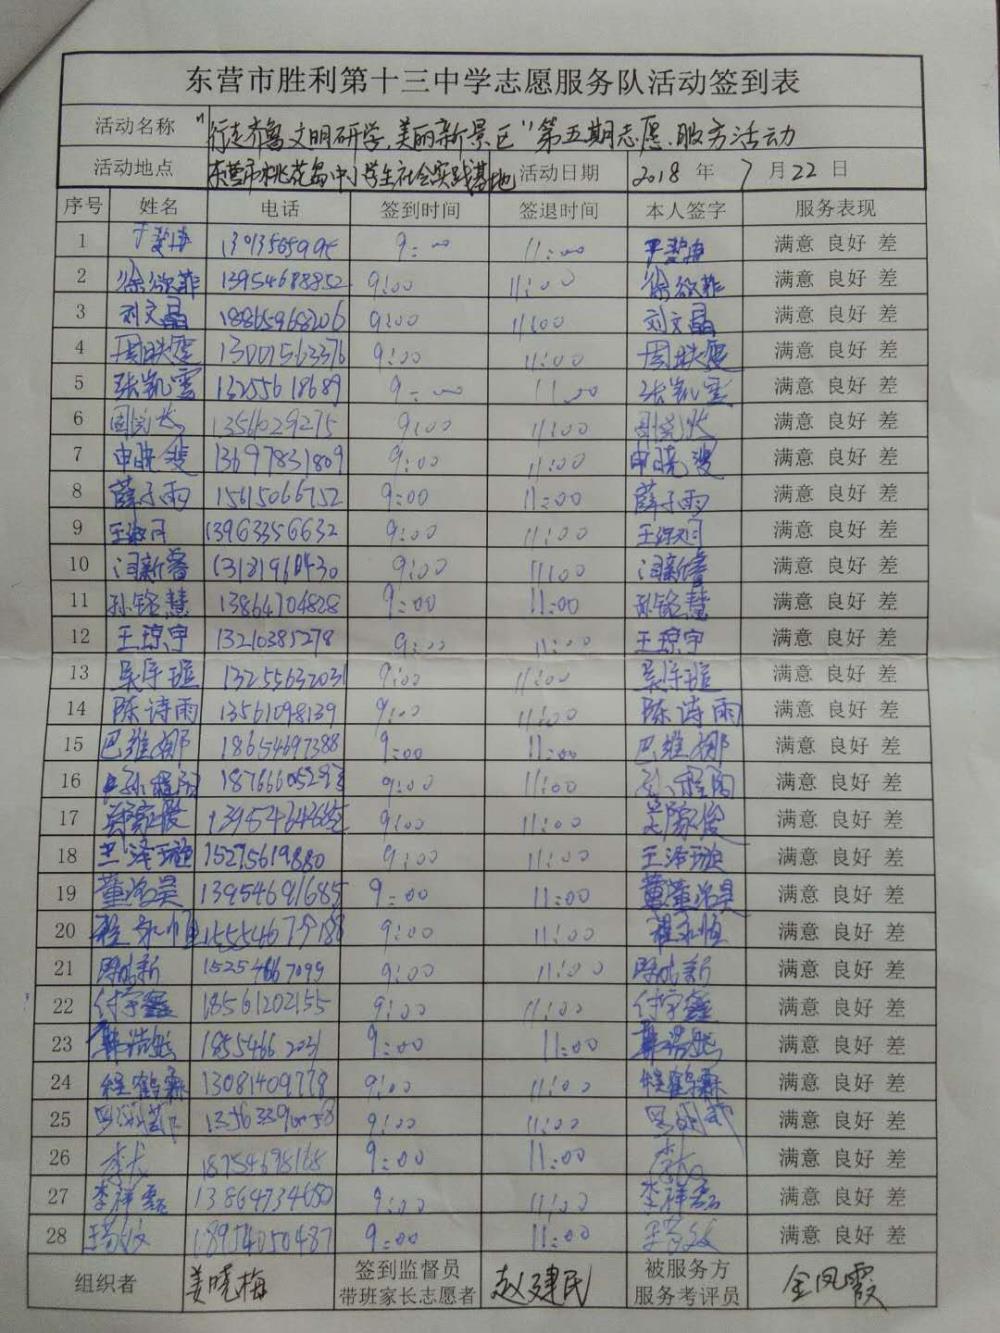 东营市胜利第十三中学志愿服务队活动签到表
活动名称 “行走齐鲁文明研学,美丽新景区”第五期志愿服务活动
活动地点 东营市桃花岛中小学生社会实践基地 活动日期 2018 年 7 月 22 日
序号 姓名 电话 签到时间 签退时间 本人签字 服务表现
1 9:00 11:00 满意 良好 差
2 徐欣菲 13954688852 9:00 11:00 徐欣菲 满意 良好 差
3 刘文晶 18865968206 9:00 11:00 刘文晶 满意 良好 差
4 13001563376 9:00 11:00 满意 良好 差
5 张凯雲 13255618689 9:00 11:00 张凯雲 满意 良好 差
6 13561029275 9:00 11:00 满意 良好 差
7 申晓斐 13697831809 9:00 11:00 申晓斐 满意 良好 差
8 薛子雨 15615066752 9:00 11:00 薛子雨 满意 良好 差
9 13963356632 9:00 11:00 满意 良好 差
10 闫新睿 9:00 11:00 闫新睿 满意 良好 差
11 孙铭慧 13864704828 9:00 11:00 孙铭慧 满意 良好 差
12 王琼宇 13210385278 9:00 11:00 王琼宇 满意 良好 差
13 13255632031 9:00 11:00 满意 良好 差
14 陈诗雨 13561098139 9:00 11:00 陈诗雨 满意 良好 差
15 巴维娜 18654697388 9:00 11:00 巴维娜 满意 良好 差
16 9:00 11:00 满意 良好 差
17 9:00 11:00 满意 良好 差
18 王泽璇 15275619880 9:00 11:00 王泽璇 满意 良好 差
19 董洺昊 13954691685 9:00 11:00 董洺昊 满意 良好 差
20 程永恒 9:00 11:00 程永恒 满意 良好 差
21 15254667099 9:00 11:00 满意 良好 差
22 付宇鑫 18561202155 9:00 11:00 付宇鑫 满意 良好 差
23 18554662031 9:00 11:00 满意 良好 差
24 程鹤霖 13081409778 9:00 11:00 程鹤霖 满意 良好 差
25 9:00 11:00 满意 良好 差
26 18754698168 9:00 11:00 满意 良好 差
27 李祥磊 13864734650 9:00 11:00 李祥磊 满意 良好 差
28 18954050487 9:00 11:00 满意 良好 差
组织者 姜晓梅 签到监督员 带班家长志愿者 赵建民 被服务方 服务考评员 金凤霞